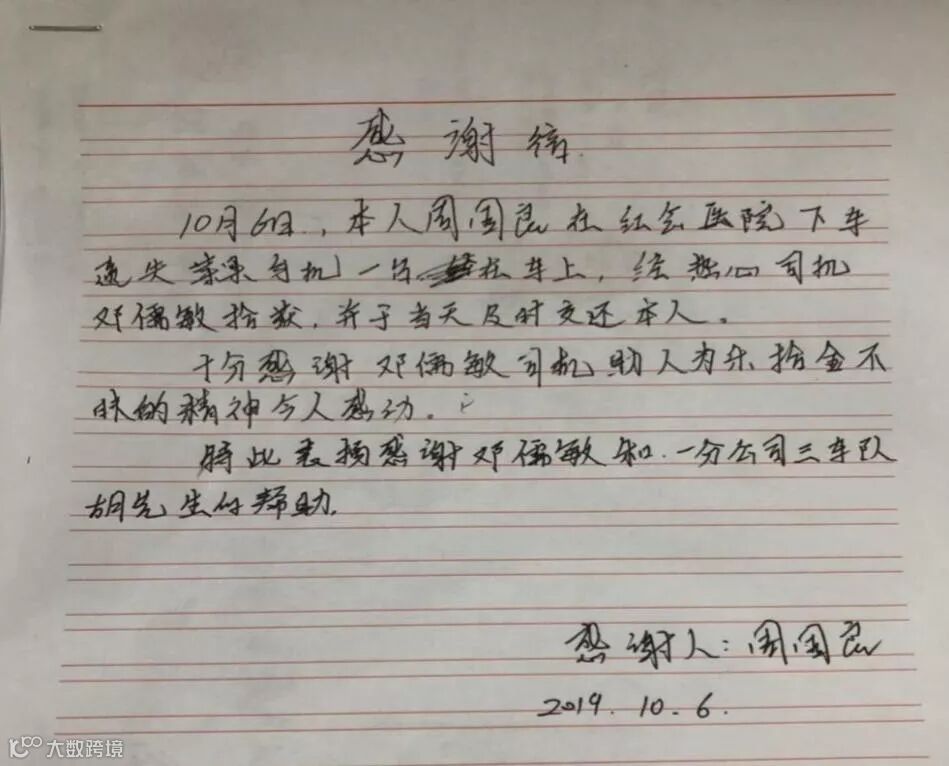 感谢信
10月6日,本人周国良在红会医院下车
遗失苹果手机一台在车上,经热心司机
邓儒敏拾获,并于当天及时交还本人。
十分感谢邓儒敏司机助人为乐拾金不
昧的精神令人感动。
特此表扬感谢邓儒敏和一分公司三车队
胡先生付帮助.
感谢人:周国良
2019.10.6.
大数跨境